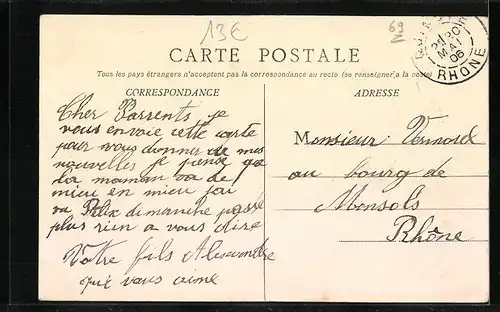 13€
69
CARTE POSTALE
Tous les pays étrangers n'acceptent pas la correspondance au recto (se renseigner à la poste)
CORRESPONDANCE
ADRESSE
RHONE
MAI
06
Cher Parrents je
vous envoie cette carte
pour vous donner de mes
nouvelles je pense que
la maman va de
mieu en mieu jai
vu Félix dimanche passé
plus rien a vous dire
Votre fils Alexandre
qui vous aime
Monsieur Vermorel
au bourg de
Monsols
Rhône